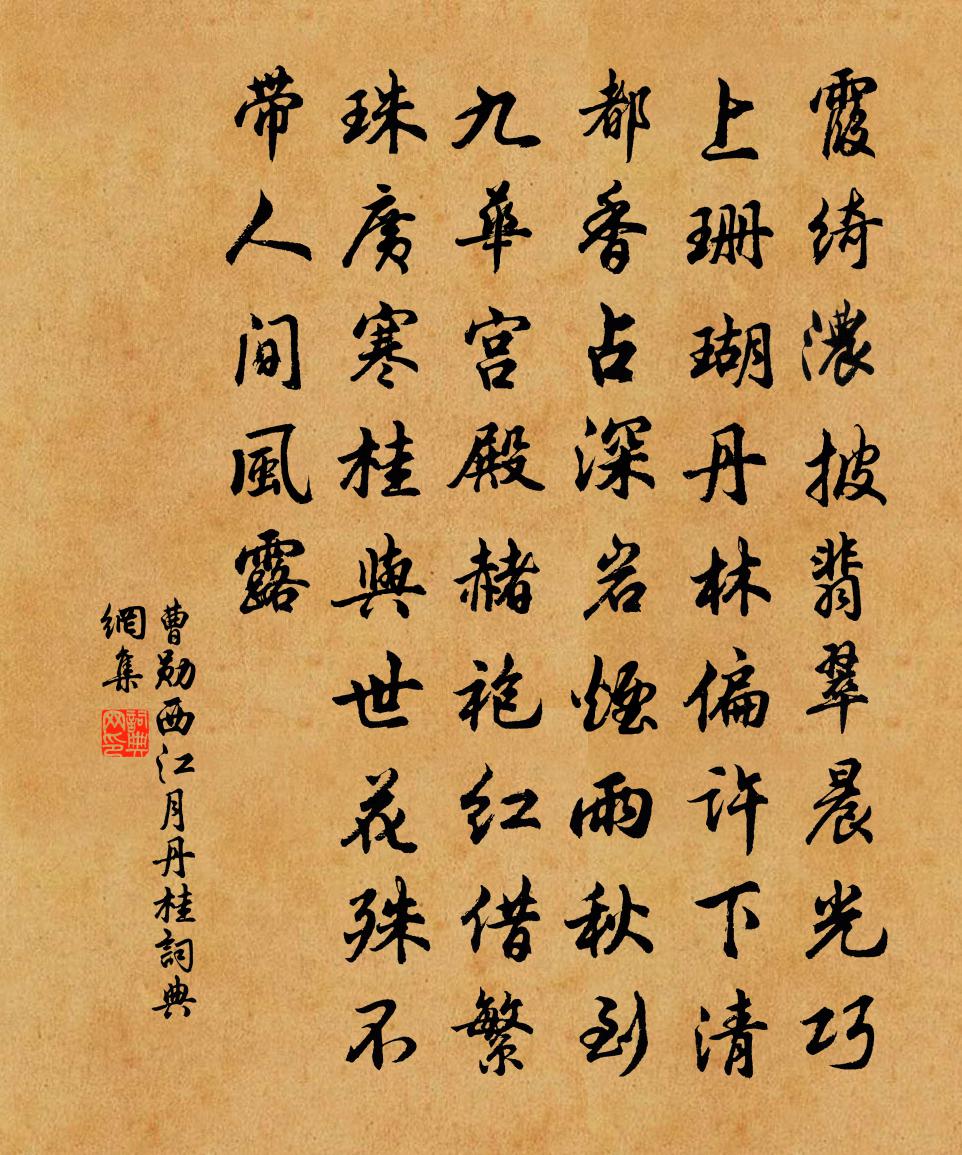 霞綺濃披翡翠晨光巧
上珊瑚丹林偏許下清
都香占深岩煙雨秋到
九華宮殿赭袍紅借繁
珠廣寒桂與世花殊不
带人間風露
曹勛西江月丹桂詞典
網集
詞典网印